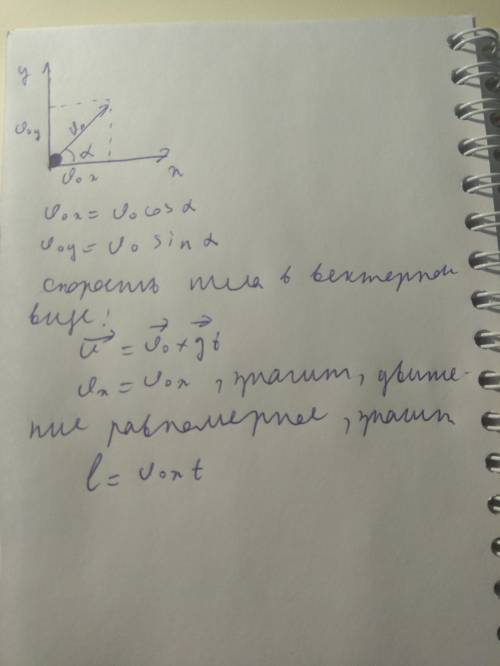 y
v₀y
v₀
α
v₀x
x
v₀x = v₀ cos α
v₀y = v₀ sin α
скорость тела в векторном
виде:
v⃗ = v⃗₀ + g⃗t
vx = v₀x, значит, движе-
ние равномерное, значит
l = v₀x t